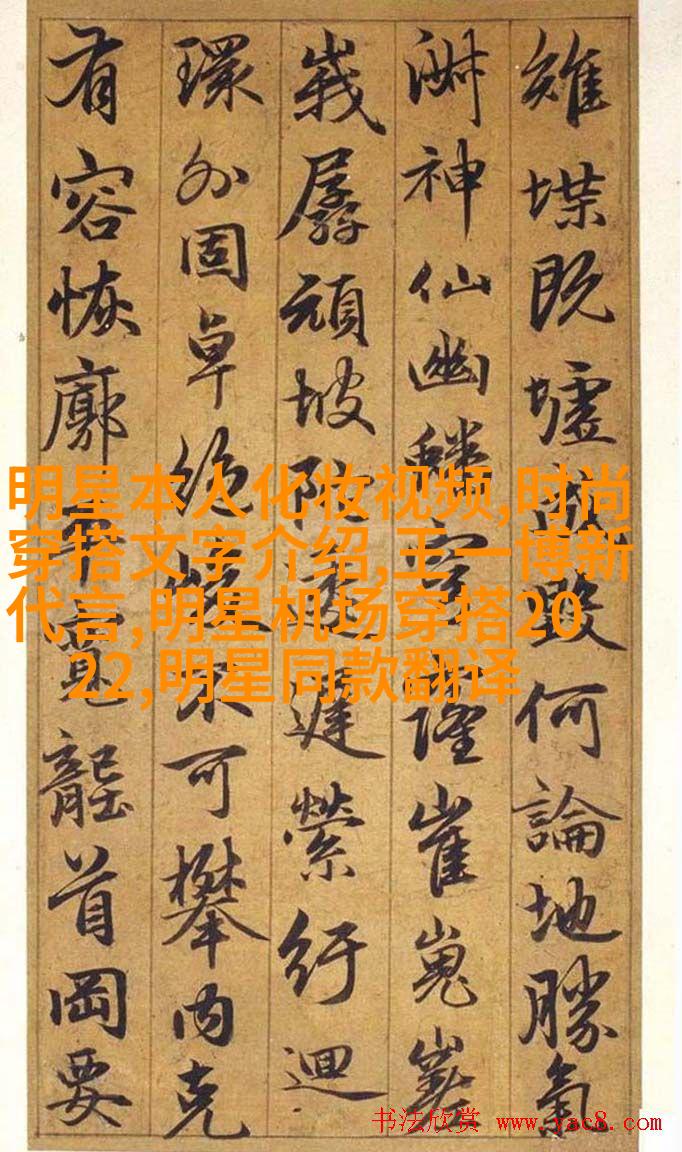 雉堞既墟 毀何論地勝氣
淋神仙幽 隆崔嵬
孱頑坡陀逶遲縈紆迴
環外固卓絶峻不可攀内克
有容恢廓平寬 首岡要
明星本人化妆视频,时尚
穿搭文字介绍,王一博新
代言,明星机场穿搭20
22,明星同款翻译
书法欣赏 www.yac8.com